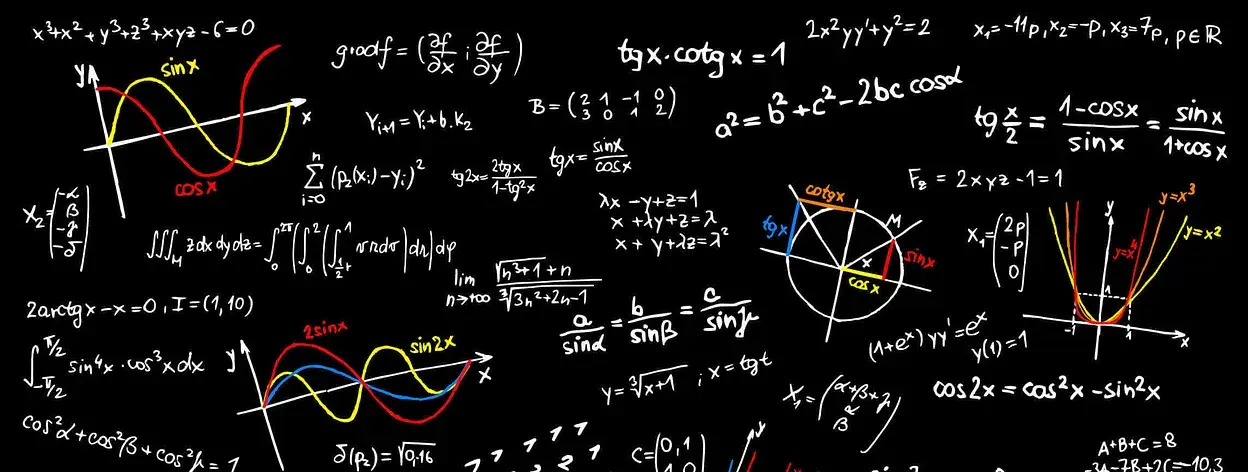 x³+x²+y³+z³+xyz-6=0
gradf = (∂f/∂x ; ∂f/∂y)
tgx·cotgx = 1
2x²yy'+y²=2
x₁=-11p, x₂=-p, x₃=7p, p∈ℝ
y
sinx
x
cosx
Y_{i+1} = Y_i + b·K₂
B = (2 1 -1 0
3 0 1 2)
a² = b² + c² - 2bc cosα
tg x/2 = (1-cosx)/sinx = sinx/(1+cosx)
∑_{i=0}^{n} (p₂(x_i) - y_i)²
tg2x = 2tgx/(1-tg²x)
tgx = sinx/cosx
F_z = 2xyz-1=1
X₂ = (-α
β
-γ
-δ)
λx - y + z = 1
x + λy + z = λ
x + y + λz = λ²
cotgx
tgx
M
x
sinx
cosx
X₁ = (2p
-p
0)
y
y=x³
y=x²
y=x⁴
1
-1
1
x
∭_M z dx dy dz = ∫₀^{2π} (∫₀²
lim_{n→+∞} (√(n³+1) + n)/∛(3n²+2n-1)
2arctgx - x = 0, I = (1,10)
a/sinα = b/sinβ = c/sinγ
∫_{-π/2}^{π/2} sin⁴x·cos³x dx
y
2sinx
sin2x
x
y = ∛(x+1) ; x = tgt
(1+eˣ) yy' = eˣ
y(1) = 1
X₁ = (α+β+γ
α
β)
cos2x = cos²x - sin²x
cos²α + cos²β + cos²γ = 1
δ(p₂) = √0,16
C = (0, 1
A+B+C = 8